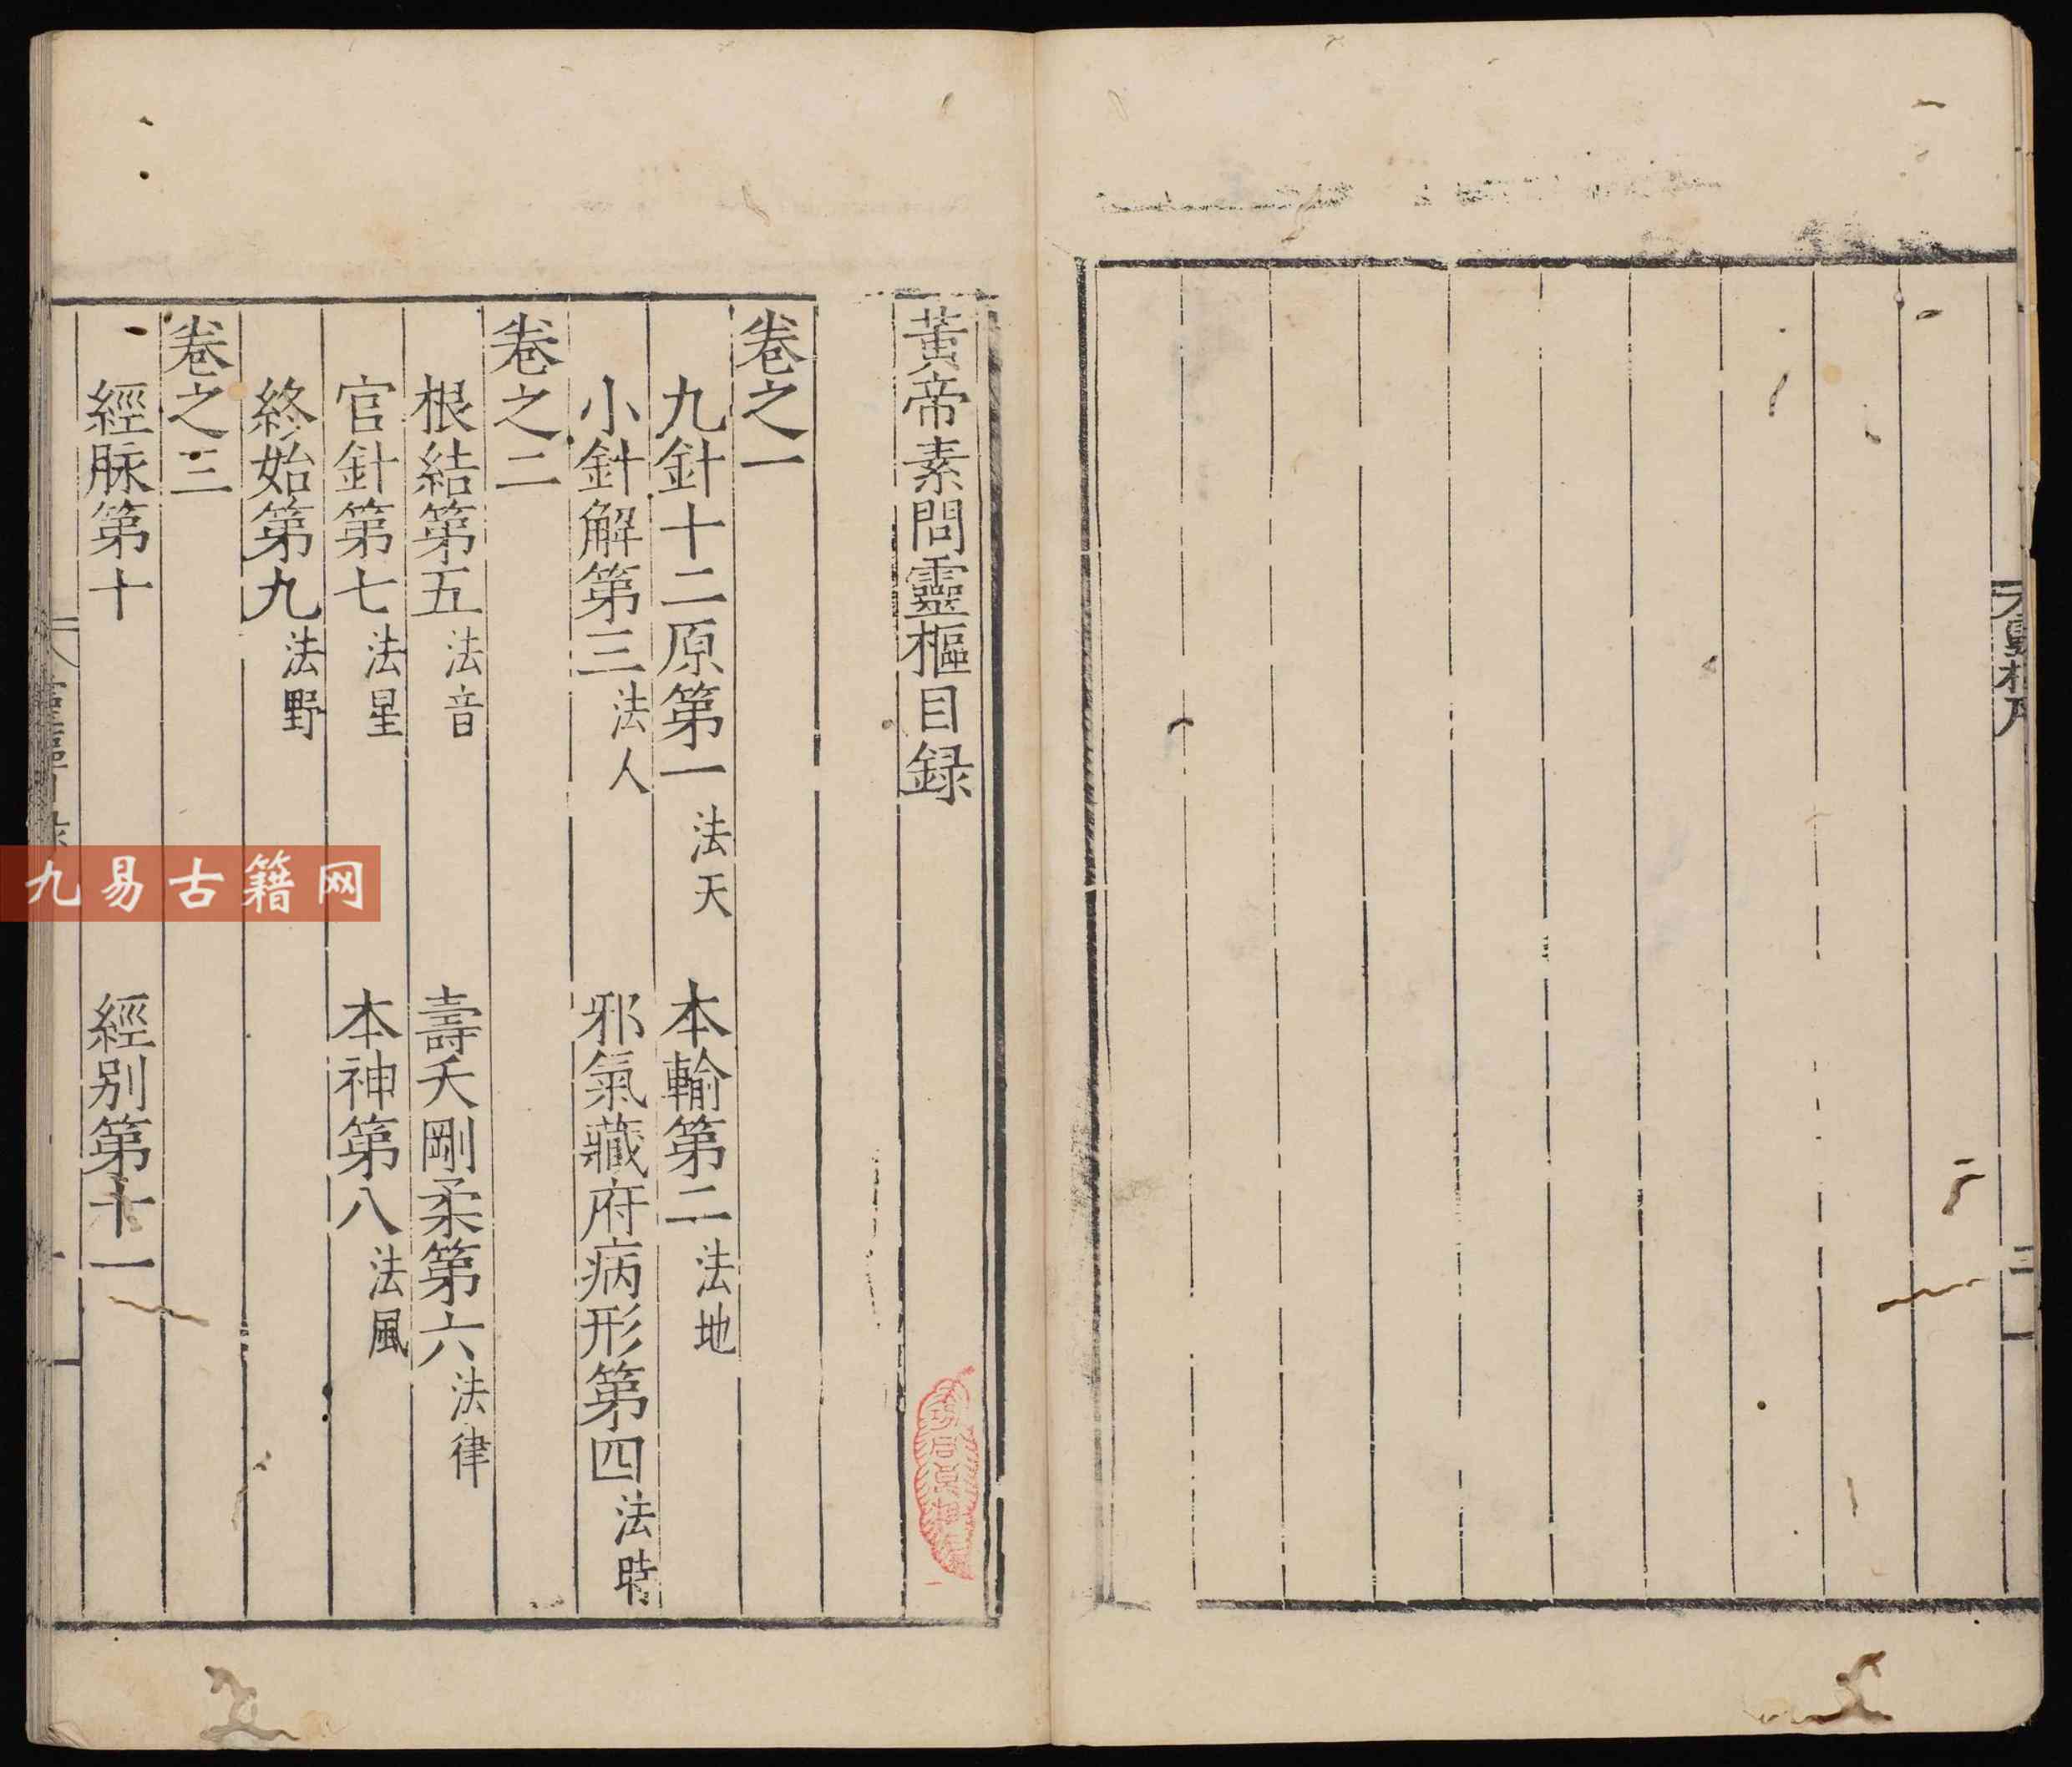 黃帝素問靈樞目録
卷之一
九針十二原第一 法天 本輸第二 法地
小針解第三 法人 邪氣藏府病形第四 法時
卷之二
根結第五 法音 壽夭剛柔第六 法律
官針第七 法星 本神第八 法風
終始第九 法野
卷之三
經脉第十 經别第十一
九易古籍网